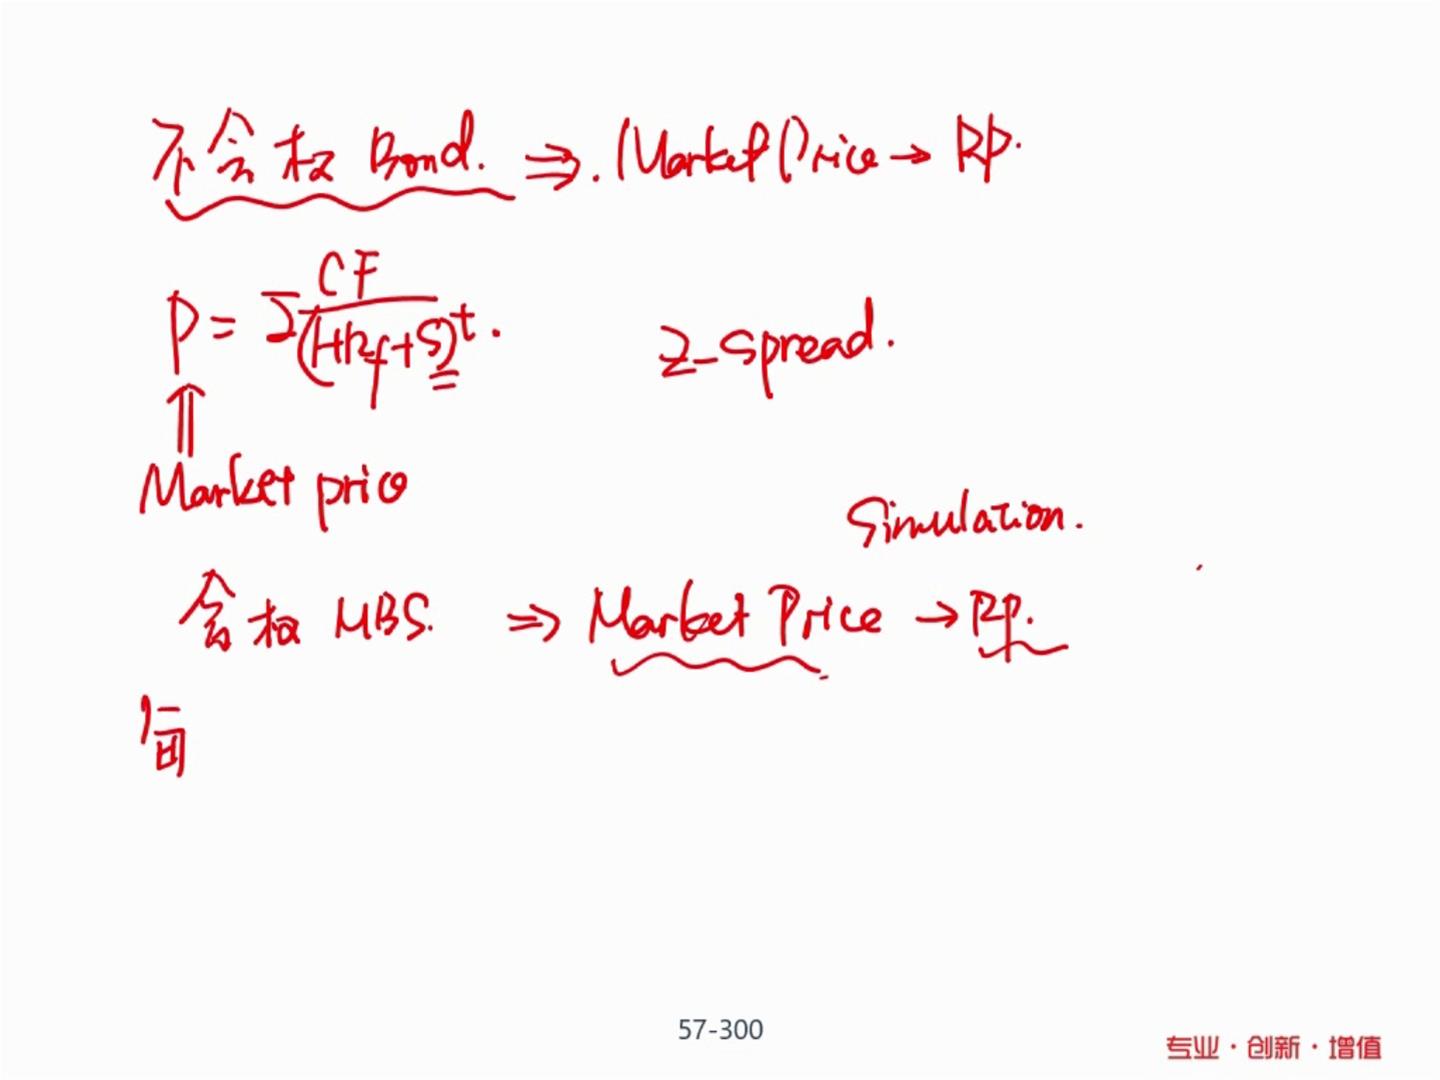 不含权 Bond. ⇒. Market Price → RP.
P = Σ CF / (1+Rf+S)^t.
Z-spread.
Market price
Simulation.
含权 MBS. ⇒ Market Price → RP.
57-300
专业·创新·增值